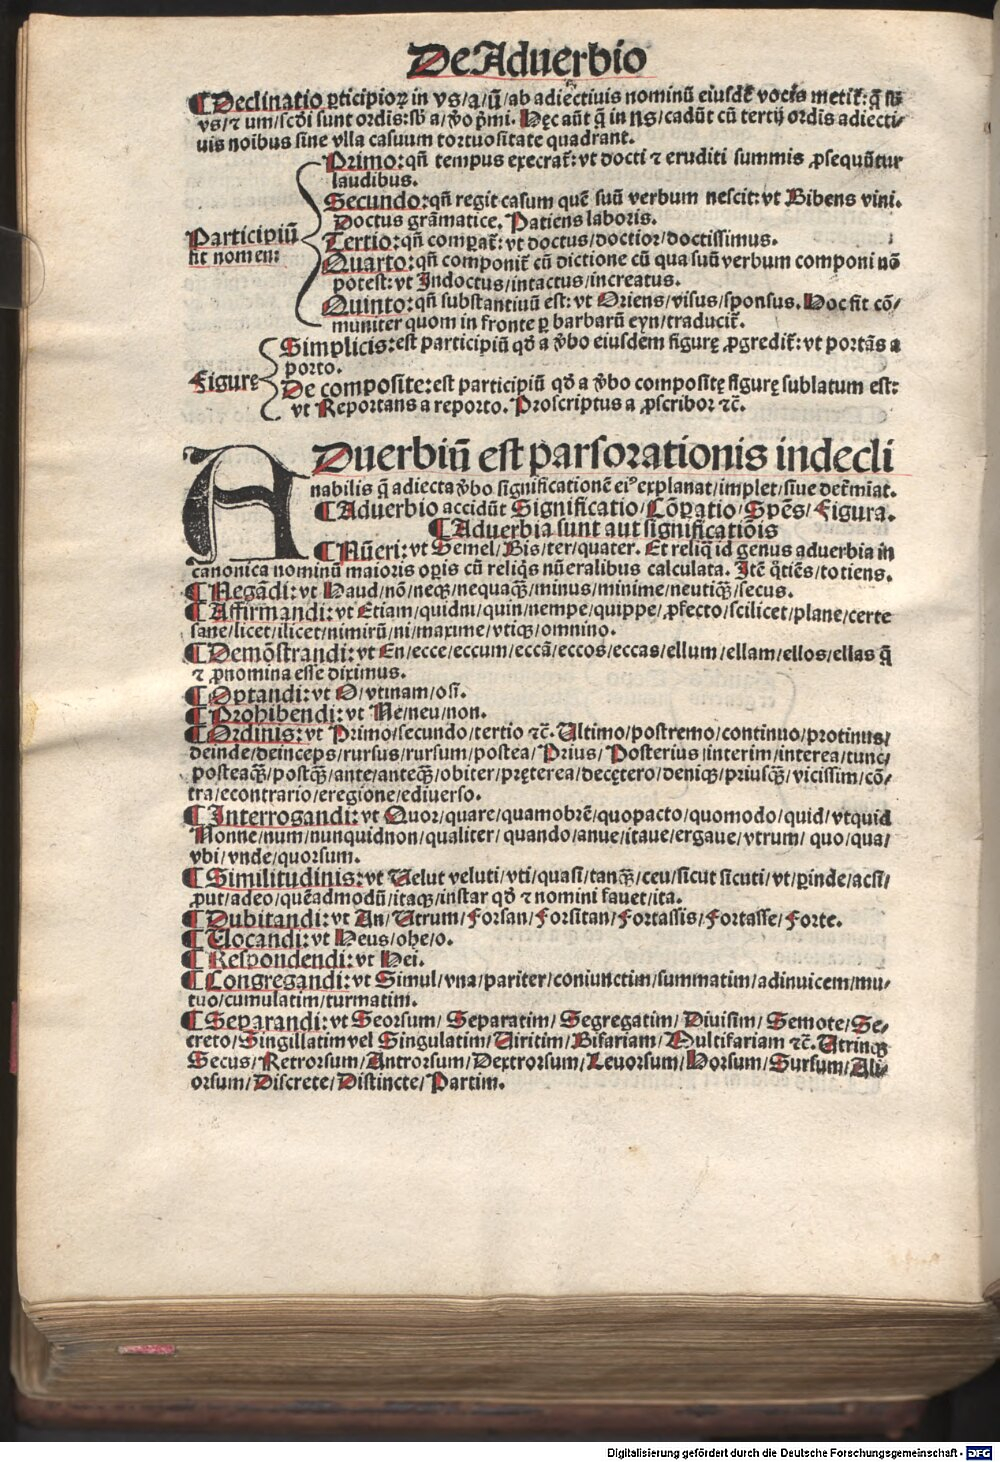 De Aduerbio
¶ Declinatio ꝑticipioꝝ in vs/a/ū/ab adiectiuis nominū eiusdē vocis metit᷑: q̄
vs/⁊ um/scd̄i sunt ordis: a/ v̓bo p̄mi. Hęc aūt q̄ in ns/cadūt cū tertij ordis adiecti⸗
uis noībus sine vlla casuum tortuositate quadrant.
Participiū
fit nomen:
Primo: qn̄ tempus execrat᷑: vt docti ⁊ eruditi summis ꝓsequūtur
laudibus.
Secundo: qn̄ regit casum quē suū verbum nescit: vt Bibens vini.
Doctus grāmatice. Patiens laboris.
Tertio: qn̄ comꝑat᷑: vt doctus/doctior/doctissimus.
Quarto: qn̄ componit᷑ cū dictione cū qua suū verbum componi nō
potest: vt Indoctus/intactus/increatus.
Quinto: qn̄ substantiuū est: vt Oriens/visus/sponsus. Hoc fit cō⸗
muniter quom in fronte ꝑ barbarū eyn/traducit᷑.
Figurę
Simplicis: est participiū qd̄ a v̓bo eiusdem figurę ꝓgredit᷑: vt portās a
porto.
De composite: est participiū qd̄ a v̓bo compositę figurę sublatum est:
vt Reportans a reporto. Proscriptus a ꝓscribor ⁊c̄.
ADuerbiū est pars orationis indecli
nabilis q̄ adiecta v̓bo significationē eiꝰ explanat/implet/siue det᷑mīat.
¶ Aduerbio accidūt Significatio/Cōꝑatio/Spēs/Figura.
¶ Aduerbia sunt aut significatiōis
¶ Nūeri: vt Semel/Bis/ter/quater. Et reliq̄ id genus aduerbia in
canonica nominū maioris oꝑis cū reliq̄s nūeralibus calculata. Itē q̄tiēs/totiens.
¶ Negādi: vt Haud/nō/neqꝫ/nequaqꝫ̄/minus/minime/neutiqꝫ̄/secus.
¶ Affirmandi: vt Etiam/quidni/quin/nempe/quippe/ꝓfecto/scilicet/plane/certe
sane/licet/ilicet/nimirū/ni/maxime/vtiqꝫ/omnino.
¶ Demōstrandi: vt En/ecce/eccum/eccā/eccos/eccas/ellum/ellam/ellos/ellas q̄
⁊ ꝓnomina esse diximus.
¶ Optandi: vt O/vtinam/osi.
¶ Prohibendi: vt Ne/neu/non.
¶ Ordinis: vt Primo/secundo/tertio ⁊c̄. Ultimo/postremo/continuo/protinus/
deinde/deinceps/rursus/rursum/postea/Prius/Posterius/interim/interea/tunc/
posteaqꝫ̄/postqꝫ̄/ante/anteqꝫ̄/obiter/pręterea/decętero/deniqꝫ/priusqꝫ̄/vicissim/cō⸗
tra/econtrario/eregione/ediuerso.
¶ Interrogandi: vt Quor/quare/quamobrē/quopacto/quomodo/quid/vtquid
Nonne/num/nunquidnon/qualiter/quando/anue/itaue/ergaue/vtrum/quo/qua/
vbi/vnde/quorsum.
¶ Similitudinis: vt Uelut veluti/vti/quasi/tanqꝫ̄/ceu/sicut sicuti/vt/ꝑinde/acsi/
ꝓut/adeo/quēadmodū/itaqꝫ/instar qd̄ ⁊ nomini fauet/ita.
¶ Dubitandi: vt An/Utrum/Forsan/Forsitan/Fortassis/Fortasse/Forte.
¶ Uocandi: vt Heus/ohe/o.
¶ Respondendi: vt Hei.
¶ Congregandi: vt Simul/vna/pariter/coniunctim/summatim/adinuicem/mu⸗
tuo/cumulatim/turmatim.
¶ Separandi: vt Seorsum/Separatim/Segregatim/Diuisim/Semote/Se⸗
creto/Singillatim vel Singulatim/Uiritim/Bifariam/Multifariam ⁊c̄. Utrinqꝫ
Secus/Retrorsum/Antrorsum/Dextrorsum/Leuorsum/Horsum/Sursum/Ali⸗
orsum/Discrete/Distincte/Partim.
Digitalisierung gefördert durch die Deutsche Forschungsgemeinschaft - DFG